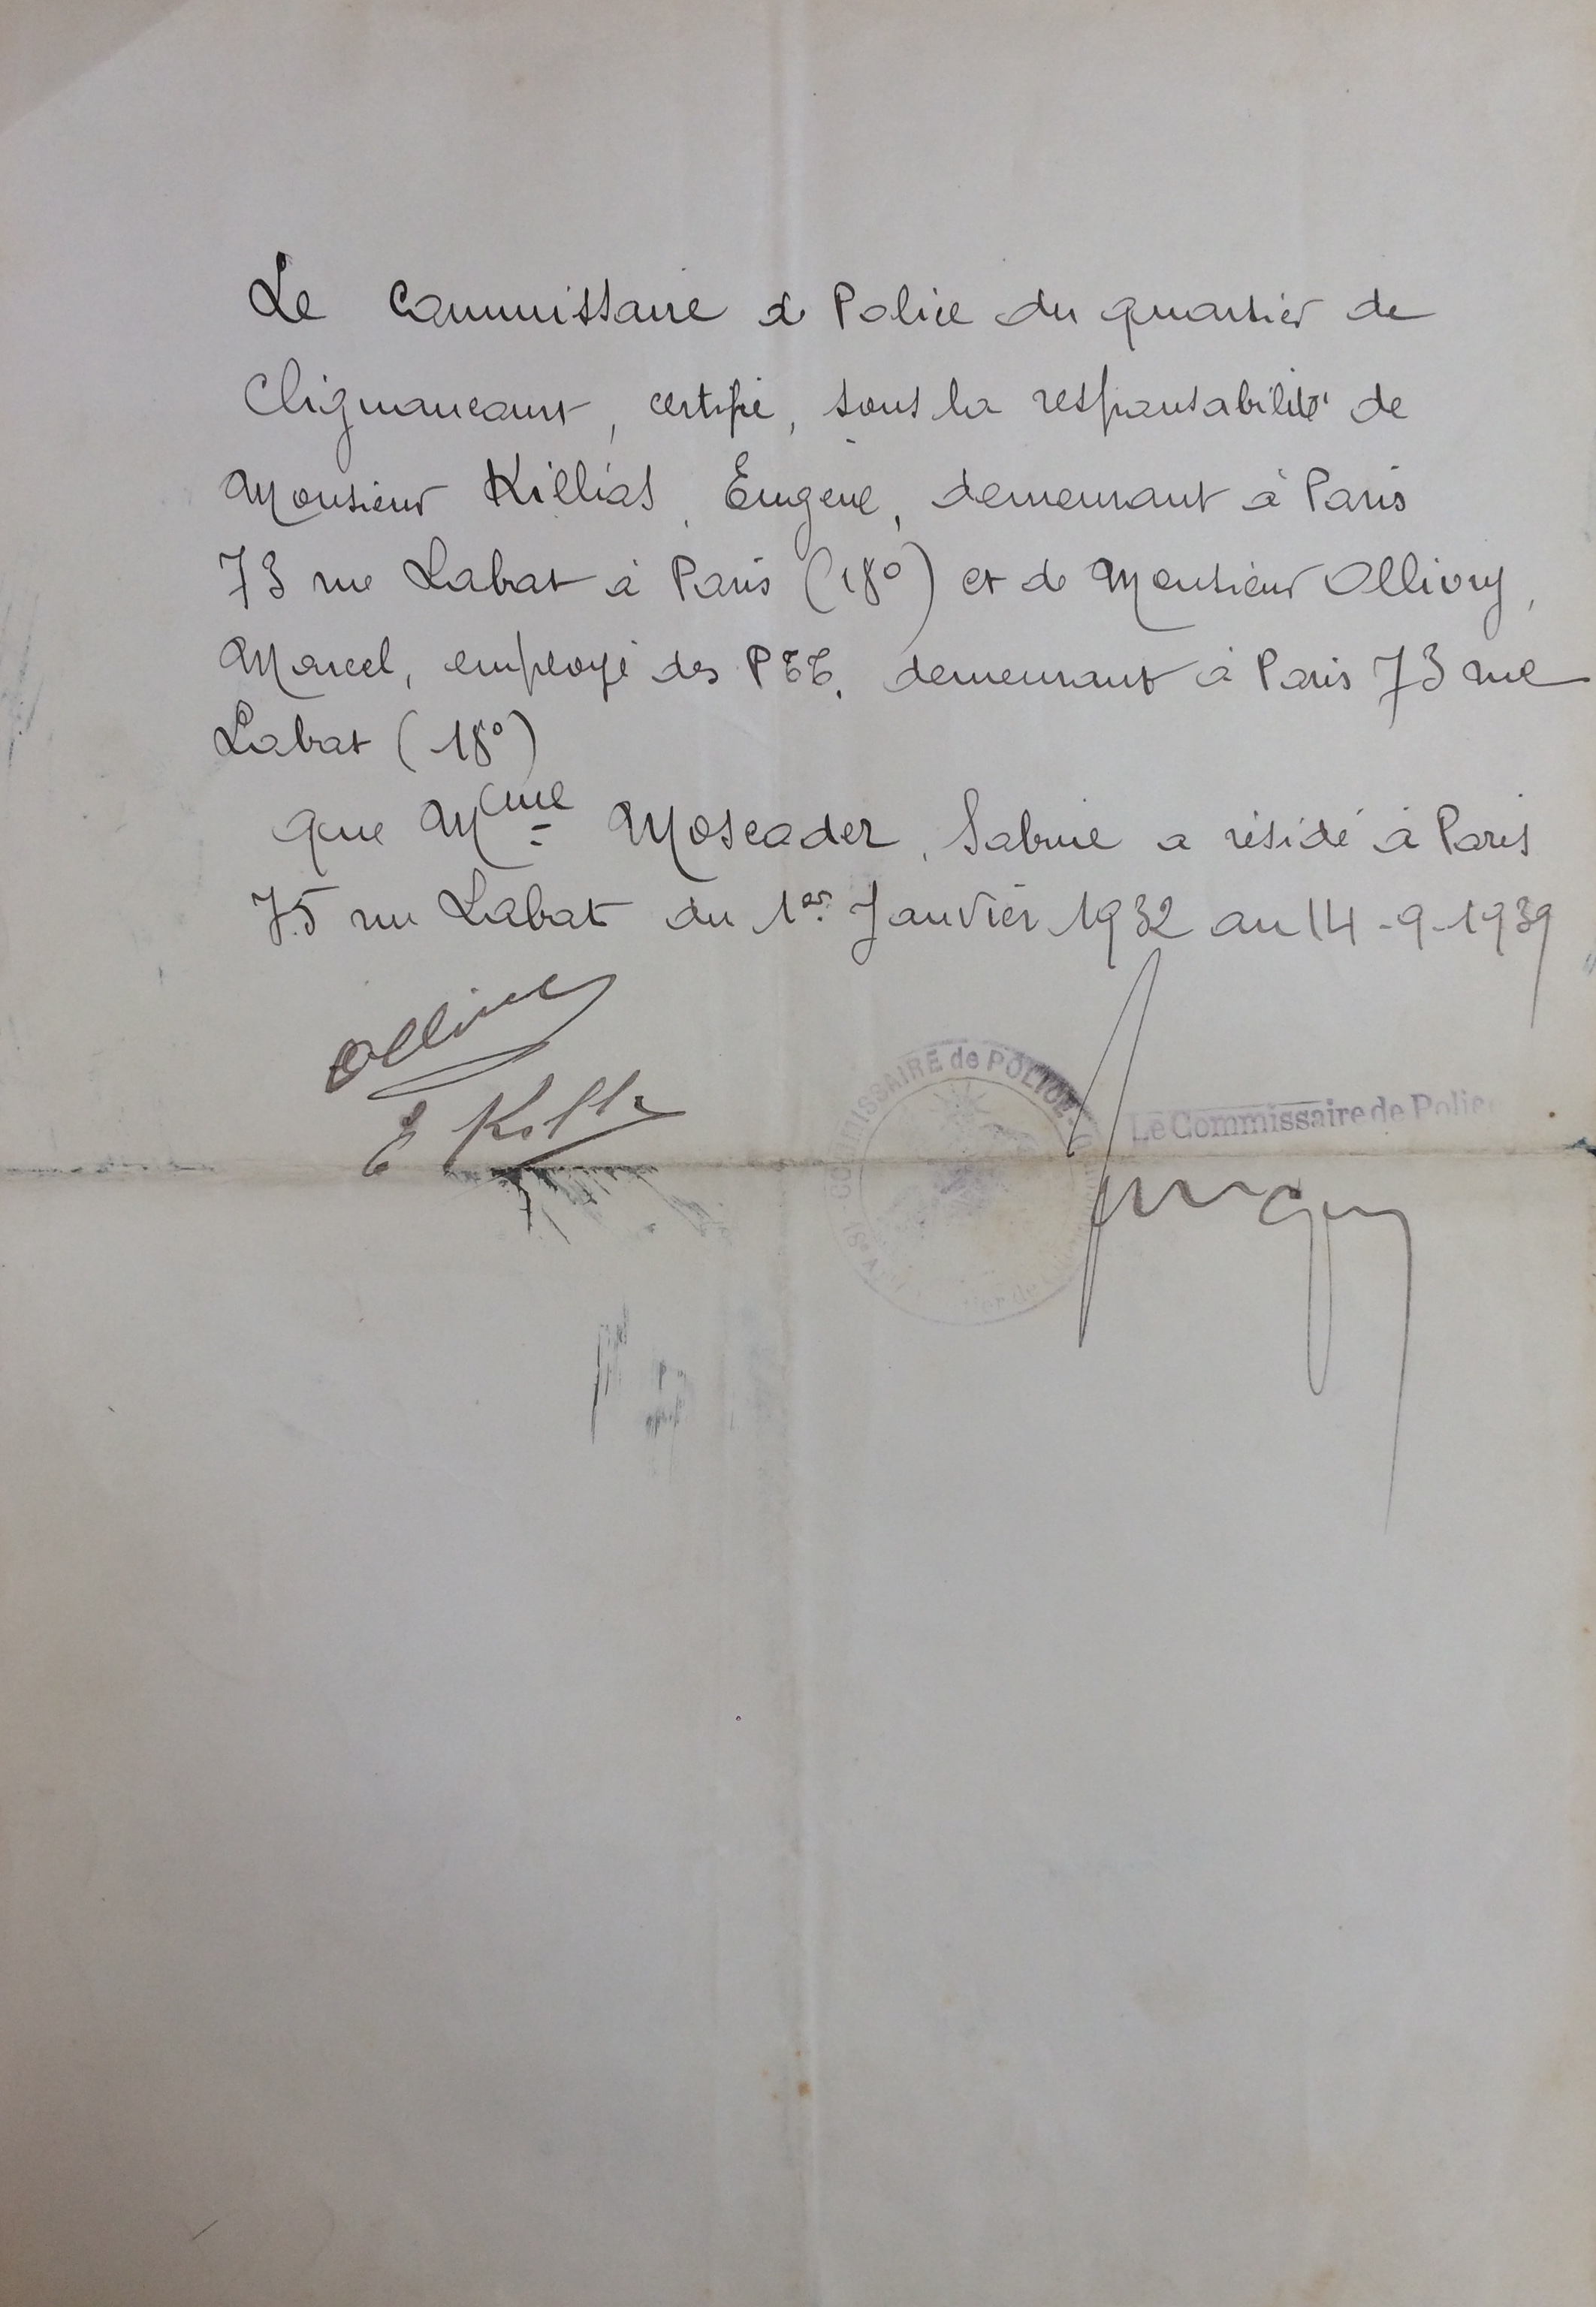 Le Commissaire de Police du quartier de
Clignancourt, certifie, sous la responsabilité de
Monsieur Killias, Eugène, demeurant à Paris
73 rue Labat à Paris (18°) et de Monsieur Ollivry,
Marcel, employé des PTT, demeurant à Paris 73 rue
Labat (18°)
que Mme Moscader, Sabine a résidé à Paris
75 rue Labat du 1er Janvier 1932 au 14-9-1939
COMMISSAIRE de POLICE
Le Commissaire de Police